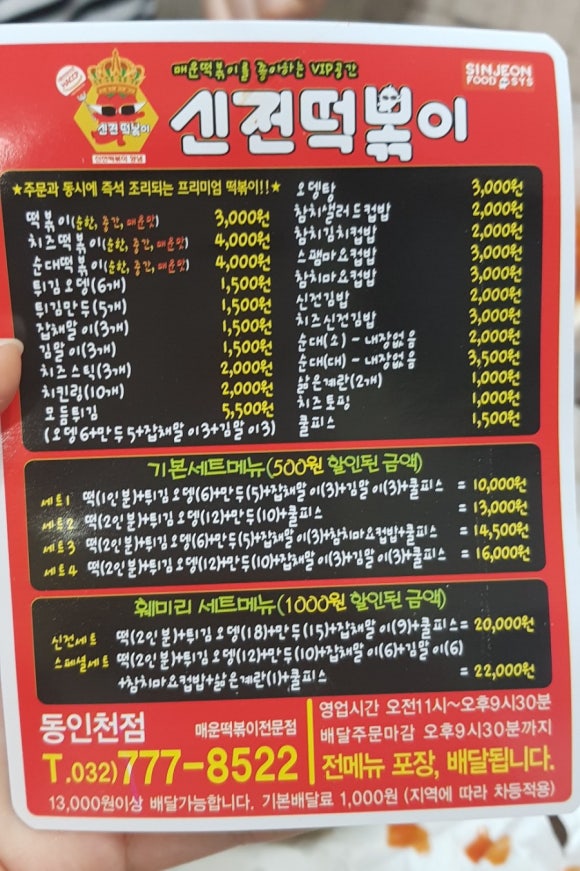 매운떡볶이를 좋아하는 VIP공간
SINJEON
FOOD SYS
신전떡볶이
신전떡볶이
★주문과 동시에 즉석 조리되는 프리미엄 떡볶이!!★
떡볶이(순한, 중간, 매운맛) 3,000원
치즈떡볶이(순한, 중간, 매운맛) 4,000원
순대떡볶이(순한, 중간, 매운맛) 4,000원
튀김오뎅(6개) 1,500원
튀김만두(5개) 1,500원
잡채말이(3개) 1,500원
김말이(3개) 1,500원
치즈스틱(3개) 2,000원
치킨링(10개) 2,000원
모듬튀김 5,500원
(오뎅6+만두5+잡채말이3+김말이3)
오뎅탕 3,000원
참치샐러드컵밥 2,000원
참치김치컵밥 2,000원
스팸마요컵밥 3,000원
참치마요컵밥 3,000원
신전김밥 2,000원
치즈신전김밥 3,000원
순대(소) - 내장없음 2,000원
순대(대) - 내장없음 3,500원
삶은계란(2개) 1,000원
치즈토핑 1,000원
쿨피스 1,500원
기본세트메뉴(500원 할인된 금액)
세트1 떡(1인분)+튀김오뎅(6)+만두(5)+잡채말이(3)+김말이(3)+쿨피스 = 10,000원
세트2 떡(2인분)+튀김오뎅(12)+만두(10)+쿨피스 = 13,000원
세트3 떡(2인분)+튀김오뎅(6)+만두(5)+잡채말이(3)+참치마요컵밥+쿨피스 = 14,500원
세트4 떡(2인분)+튀김오뎅(12)+만두(10)+잡채말이(3)+김말이(3)+쿨피스 = 16,000원
훼미리 세트메뉴(1000원 할인된 금액)
신전세트 떡(2인분)+튀김오뎅(18)+만두(15)+잡채말이(9)+쿨피스= 20,000원
스페셜세트 떡(2인분)+튀김오뎅(12)+만두(10)+잡채말이(6)+김말이(6)
+참치마요컵밥+삶은계란(1)+쿨피스 = 22,000원
동인천점 매운떡볶이전문점
T.032)777-8522
영업시간 오전11시~오후9시30분
배달주문마감 오후9시30분까지
전메뉴 포장, 배달됩니다.
13,000원이상 배달가능합니다. 기본배달료 1,000원 (지역에 따라 차등적용)